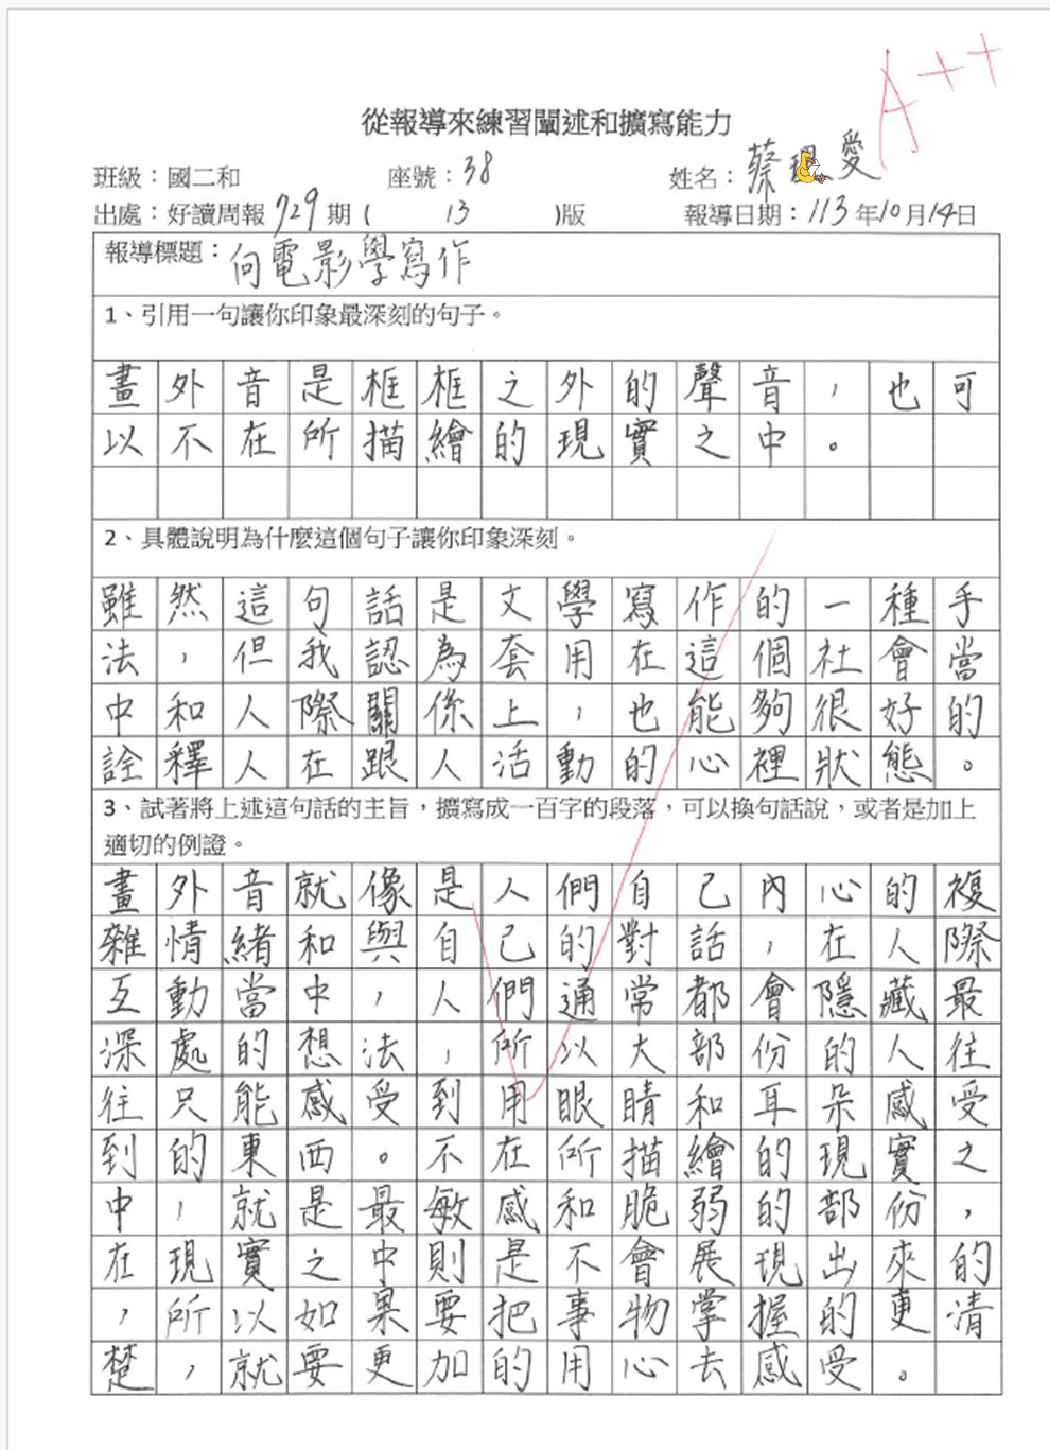 A++
從報導來練習闡述和擴寫能力
班級：國二和 座號：38 姓名：蔡 愛
出處：好讀周報 729 期 ( 13 )版 報導日期：113年10月14日
報導標題：向電影學寫作
1、引用一句讓你印象最深刻的句子。
畫外音是框框之外的聲音，也可
以不在所描繪的現實之中。
2、具體說明為什麼這個句子讓你印象深刻。
雖然這句話是文學寫作的一種手
法，但我認為套用在這個社會當
中和人際關係上，也能夠很好的
詮釋人在跟人活動的心裡狀態。
3、試著將上述這句話的主旨，擴寫成一百字的段落，可以換句話說，或者是加上
適切的例證。
畫外音就像是人們自己內心的複
雜情緒和與自己的對話，在人際
互動當中，人們通常都會隱藏最
深處的想法，所以大部份的人往
往只能感受到用眼睛和耳朵感受
到的東西。不在所描繪的現實之
中，就是最敏感和脆弱的部份，
在現實之中則是不會展現出來的
，所以如果要把事物掌握的更清
楚，就要更加的用心去感受。